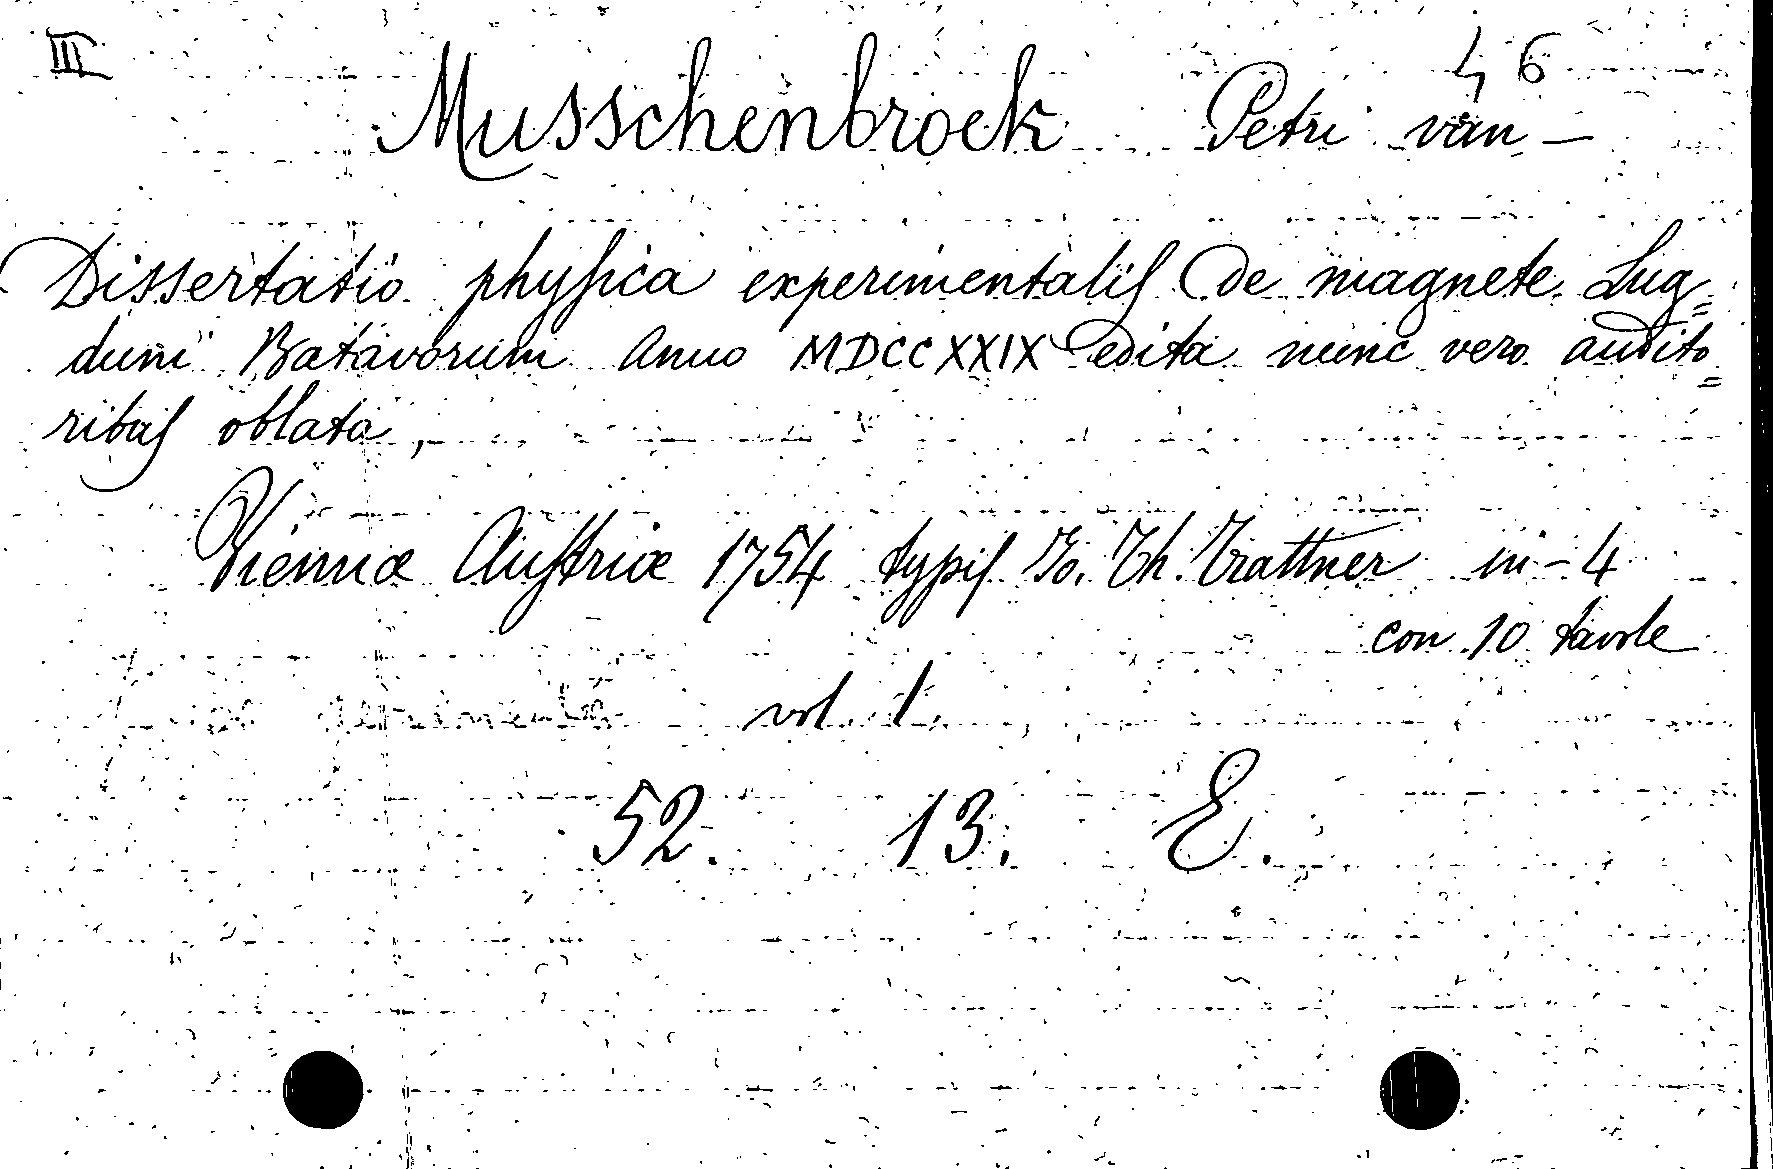 III
46
Musschenbroek Petri van —
Dissertatio physica experimentalis de magnete Lug=
duni Batavorum Anno MDCCXXIX edita nunc vero audito=
ribus oblata,
Viennæ Austriæ 1754 typis Jo. Th. Trattner in-4
con 10 tavole
vol 1.
52. 13. E.